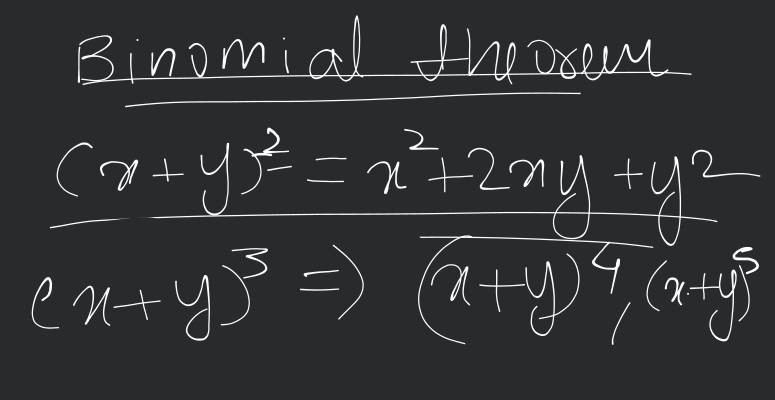 Binomial theorem
(x+y)² = x²+2xy+y²
(x+y)³ => (x+y)⁴, (x+y)⁵